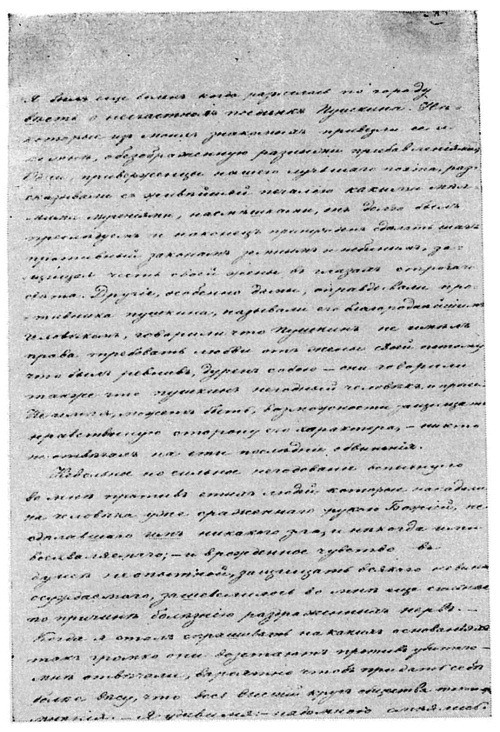 Я былъ еще боленъ когда разнеслась по городу
вѣсть о несчастномъ поединкѣ Пушкина. Нѣ-
которые изъ моихъ знакомыхъ привезли ее и
ко мнѣ, обезображенную разными прибавленіями.
Одни, приверженцы нашего лучшаго поэта, раз-
сказывали съ живѣйшей печалью какими мел-
кими мученіями, насмѣшками, онъ долго былъ
преслѣдуемъ и наконецъ принужденъ сдѣлать шагъ
противный законамъ земнымъ и небеснымъ, за-
щищая честь своей жены въ глазахъ строгаго
свѣта. Другіе, особенно дамы, оправдывали про-
тивника Пушкина, называли его благороднѣйшимъ
человѣкомъ, говорили что Пушкинъ не имѣлъ
права требовать любви отъ жены своей потому
что былъ ревнивъ, дуренъ собою — они говорили
также что Пушкинъ негодный человѣкъ и проч.
Не имѣя, можетъ быть, возможности защищать
нравственную сторону его характера, — никто
не отвѣчалъ на эти послѣднія обвиненія.
Невольное но сильное негодованіе вспыхнуло
во мнѣ противъ этихъ людей которые нападали
на человѣка уже сраженнаго рукою Божіей, не
сдѣлавшаго имъ никакого зла, и нѣкогда ими
восхваляемаго; — и врожденное чувство въ
душѣ неопытной, защищать всякаго невинно
осуждаемаго, зашевелилось во мнѣ еще сильнѣе
по причинѣ болѣзнію раздраженныхъ нервъ. —
Когда я сталъ спрашивать на какихъ основаніяхъ
такъ громко они возстаютъ противъ убитаго —
мнѣ отвѣчали, вѣроятно чтобъ придать себѣ
болѣе вѣсу, что весь высшій кругъ общества того же
мнѣнія. — Я удивился: — надо мною смѣялись.